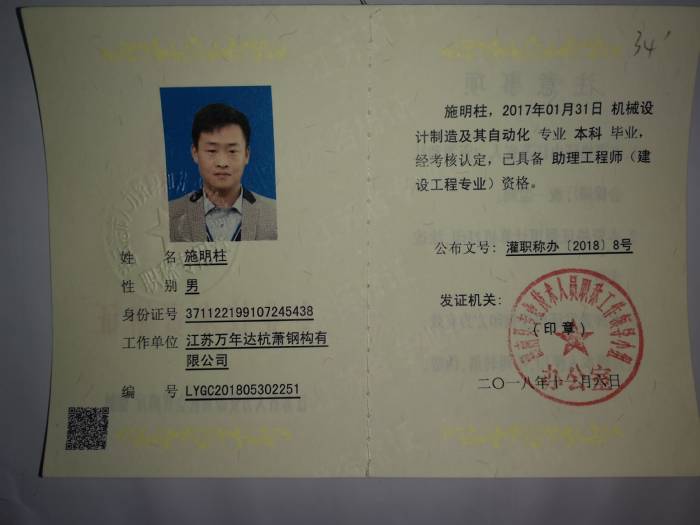 34'
姓 名 施明柱
性 别 男
身份证号 371122199107245438
工作单位 江苏万年达杭萧钢构有
限公司
编 号 LYGC201805302251
施明柱，2017年01月31日 机械设
计制造及其自动化 专业 本科 毕业，
经考核认定，已具备 助理工程师（建
设工程专业）资格。
公布文号：灌职称办〔2018〕8号
发证机关：
（印章）
办公室